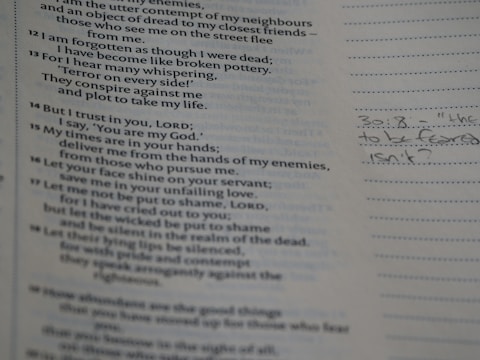 my enemies,
I am the utter contempt of my neighbours
and an object of dread to my closest friends –
those who see me on the street flee
from me.
12 I am forgotten as though I were dead;
I have become like broken pottery.
13 For I hear many whispering,
‘Terror on every side!’
They conspire against me
and plot to take my life.
14 But I trust in you, LORD;
I say, ‘You are my God.’
15 My times are in your hands;
deliver me from the hands of my enemies,
from those who pursue me.
16 Let your face shine on your servant;
save me in your unfailing love.
17 Let me not be put to shame, LORD,
for I have cried out to you;
but let the wicked be put to shame
and be silent in the realm of the dead.
18 Let their lying lips be silenced,
for with pride and contempt
they speak arrogantly against the
righteous.
19 How abundant are the good things
that you have stored up for those who fear
you,
that you bestow in the sight of all,
on those who take
30:8 - "the
to be
isn't?